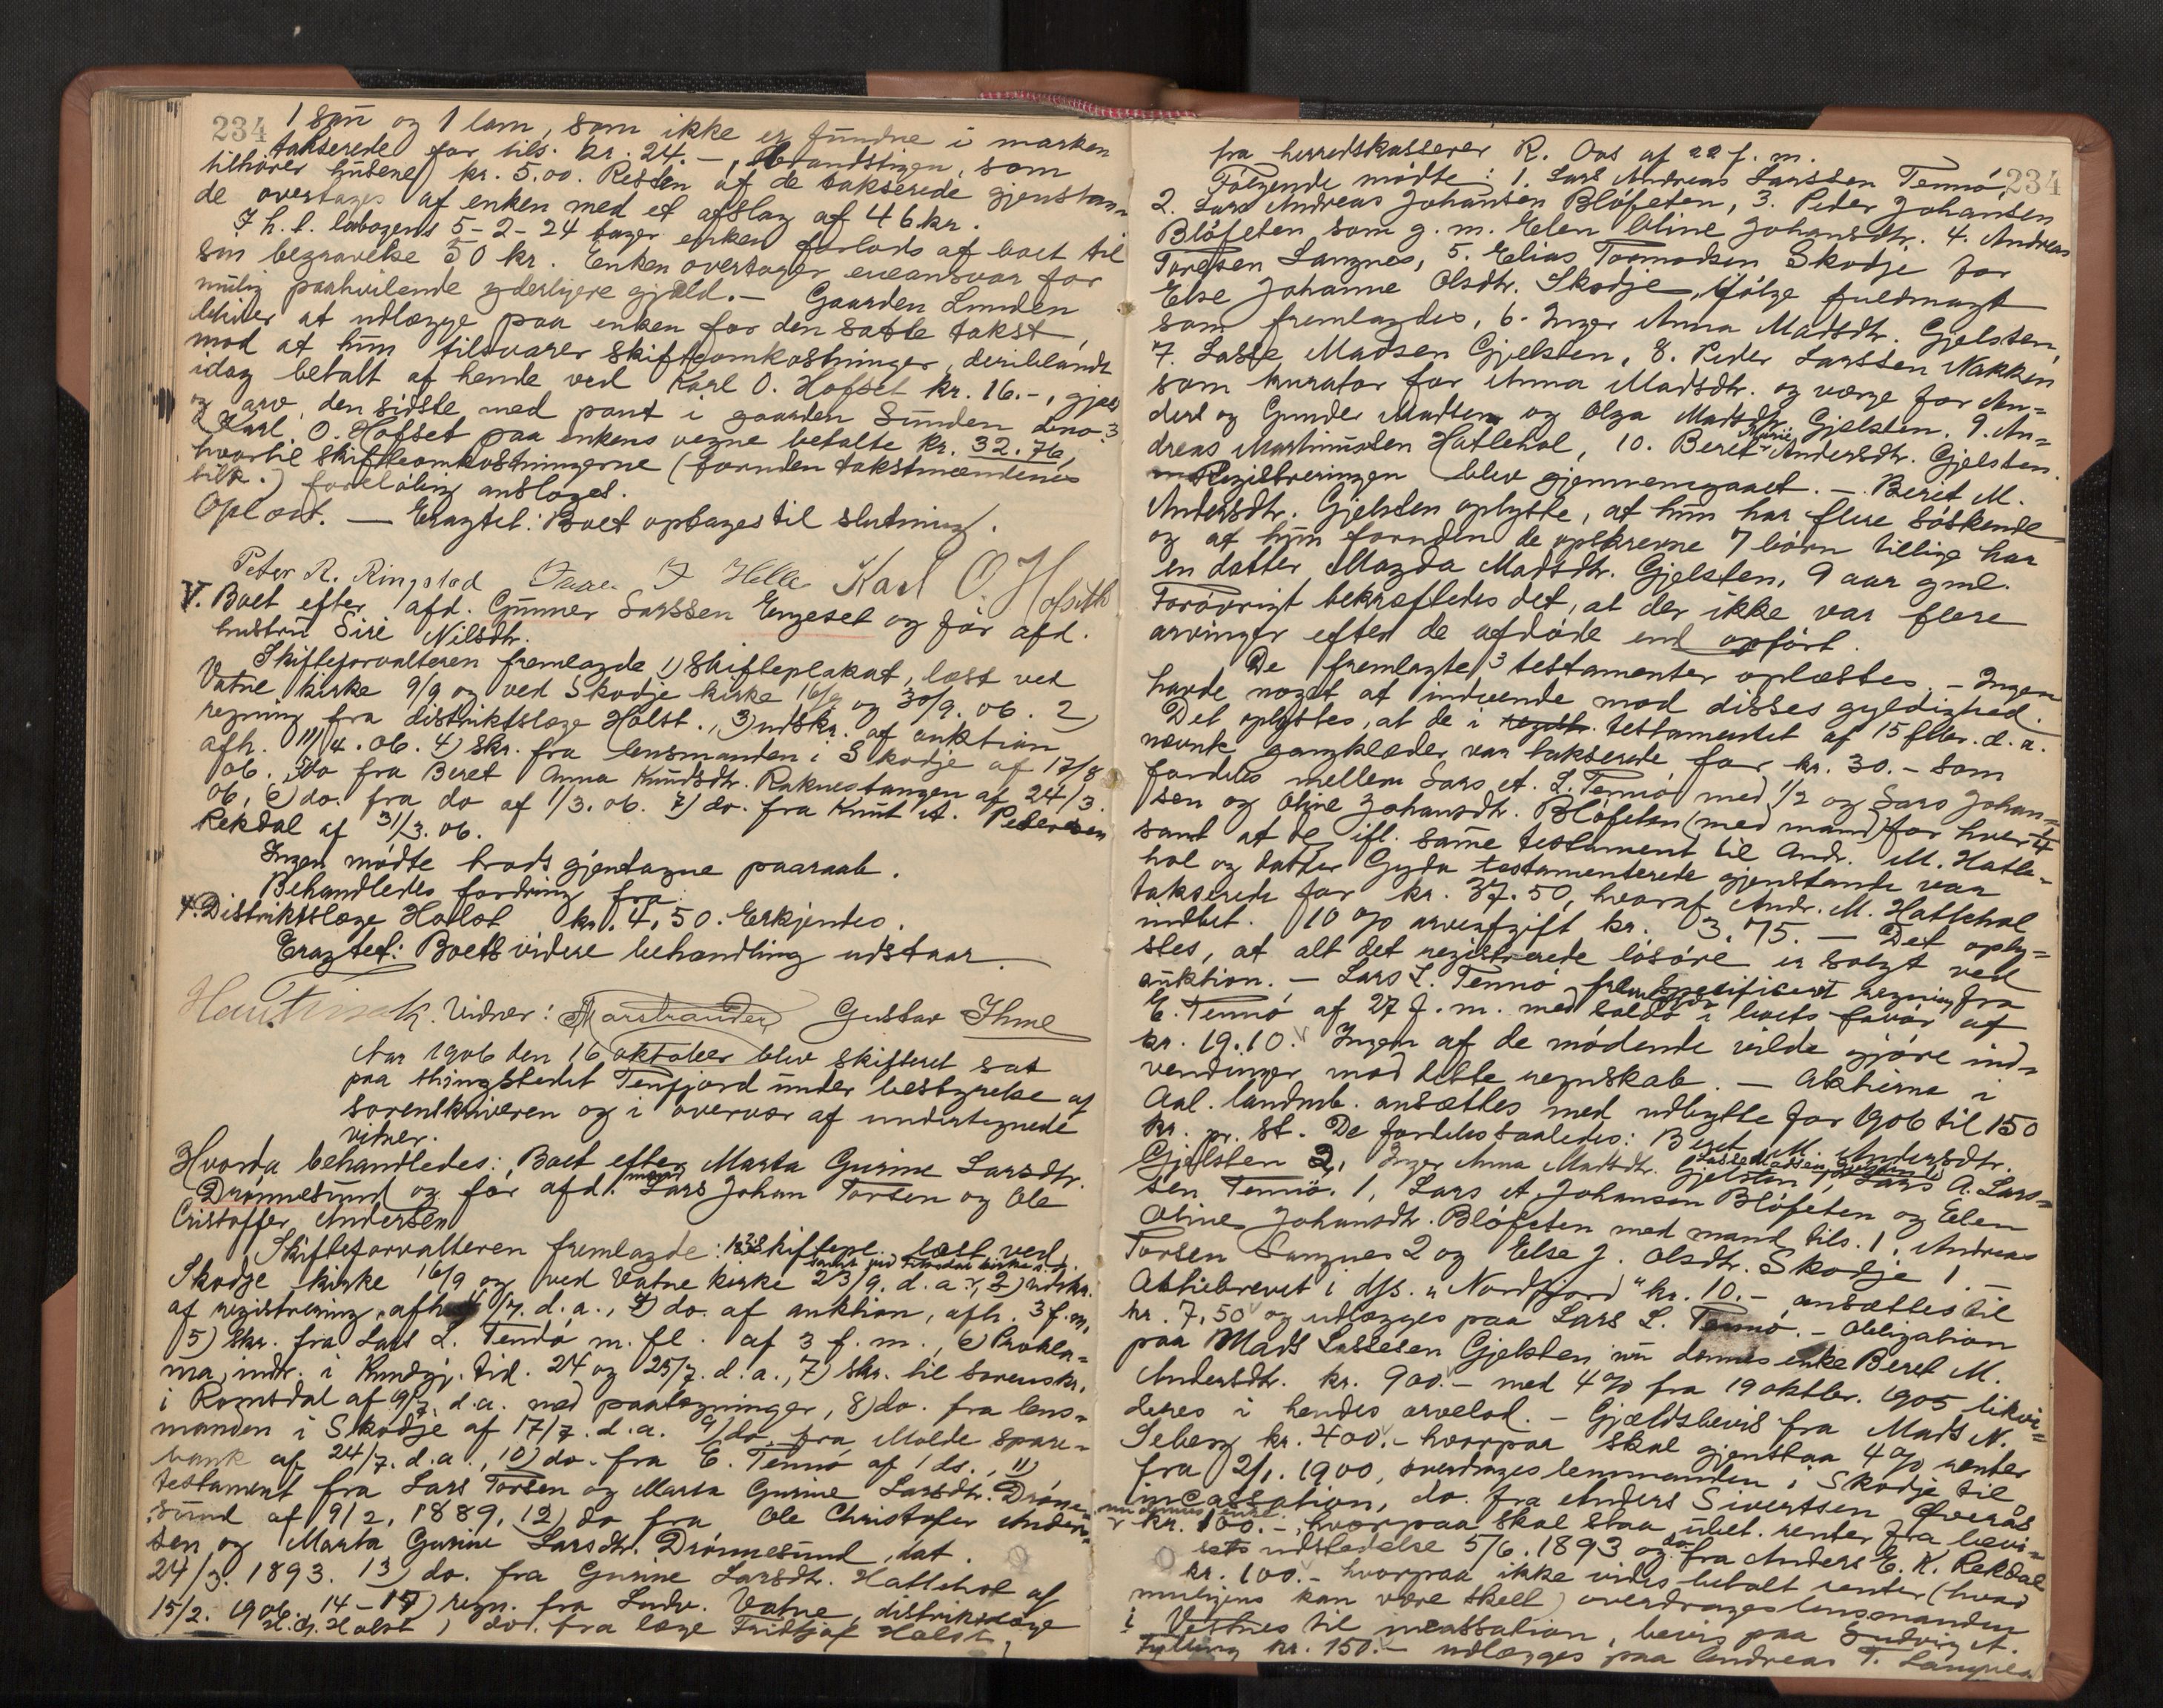 234
1 sau og 1 lam, som ikke er fundne i marken
takserede for tils. kr. 24.-, som
tilhører kr. 5.00. Resten af de takserede gjenstan=
de overtages af enken med et afslag af 46 kr.
I h. t. lovens 5-2-24 tager enken forlods af boet til
sin begravelse 50 kr. Enken overtager eneansvar for
mulig paahvilende yderligere gjæld. - Gaarden Lunden
bliver at udlægge paa enken for den satte takst,
mod at hun tilsvarer skifteomkostninger, deriblandt
idag betalt af hende ved Karl O. Hofset kr. 16.-, gjæld
og arv, den sidste med pant i gaarden Lunden bno. 3
Karl O. Hofset paa enkens vegne betalte kr. 32.76,
hvortil skifteomkostningerne (foruden takstmændenes
tilk.) foreløbig ansloges.
Oplæst. - Eragtet: Boet optages til slutning.
Peter R. Ringstad Helle Karl O. Hofseth
V. Boet efter afd. Gunner Larssen Engeset og før afd.
hustru Siri Nilsdtr.
Skifteforvalteren fremlagde 1) Skifteplakat, læst ved
Vatne kirke 9/9 og ved Skodje kirke 16/9 og 30/9. 06. 2)
regning fra distriktslæge Holst., 3) udskr. af auktion
afh. 11/4. 06. 4) Skr. fra lensmanden i Skodje af 17/8
06. 5) do fra Beret Anna Knudsdtr. Raknestangen af 24/3.
06, 6) do. fra do af 1/3. 06. 7) do. fra Knut A. Pedersen
Rekdal af 31/3. 06.
Ingen mødte trods gjentagne paaraab.
Behandledes fordring fra:
1. Distriktslæge Holst kr. 4,50. Erkjendes.
Eragtet: Boets videre behandling udstaar.
Vidner: Marstrander Gustav Ihme
Aar 1906 den 16 oktober blev skifteret sat
paa thingstedet Tenfjord under bestyrelse af
sorenskriveren og i overvær af undertegnede
vidner.
Hvorda behandledes: Boet efter Marta Gurine Larsdtr.
Drønnesund og før afd. mænd Lars Johan Torsen og Ole
Cristoffer Andersen
Skifteforvalteren fremlagde: 1) skiftepl. læst ved
Skodje kirke 16/9 og ved Vatne kirke 23/9. d. a., 2) udskr.
af registrering, afh. 11/7. d. a., 4) do. af auktion, afh. 3 f. m.,
5) Skr. fra Lars L. Tennø m. fl. af 3 f. m., 6) Prokla=
ma, indr. i Kundgj. tid. 24 og 25/7. d. a., 7) Skr. til sorenskr.
i Romsdal af 9/7. d. a. med paategninger, 8) do. fra lens=
manden i Skodje af 17/7. d. a. 9) do. fra Molde spare=
bank af 24/7. d. a., 10) do. fra E. Tennø af 1 ds., 11)
testament fra Lars Torsen og Marta Gurine Larsdtr. Drønne=
sund af 9/2, 1889, 12) do fra Ole Christofer Ander=
sen og Marta Gurine Larsdtr. Drønnesund, dat.
24/3. 1893. 13) do. fra Gurine Larsdtr. Hatlehol af
15/2. 1906. 14-17) regn. fra Ludv. Vatne, distriktslæge
H. d. Holst, do. fra læge Fridtjof Holst,
234
fra herredskasserer R. Aas af 22 f. m.
Følgende mødte: 1. Lars Andreas Larssen Tennø,
2. Lars Andreas Johansen Bløfeten, 3. Peder Johansen
Bløfeten som g. m. Elen Oline Johansdtr. 4. Andreas
Toresen Langnes, 5. Elias Tormodsen Skodje for
Else Johanne Olsdtr. Skodje, ifølge fuldmagt
som fremlagdes, 6. Inger Anna Madsdtr. Gjelsten,
7. Lasse Madsen Gjelsten, 8. Peder Larssen Nakken
som kurator for Anna Madsdtr. og værge for An=
ders og Gunder Madsen og Olga Madsdtr. Gjelsten. 9. An=
dreas Martinussen Hatlehol, 10. Beret Marie Andersdtr. Gjelsten.
Registreringen blev gjennemgaaet. - Berit M.
Andersdtr. Gjelsten oplyste, at hun har flere søskende
og at hun foruden de opskrevne 7 børn tillige har
en datter Magda Madsdtr. Gjelsten, 9 aar gml.
Forøvrigt bekræftedes det, at der ikke var flere
arvinger efter de afdøde end opført.
De fremlagte 3 testamenter oplæstes. - Ingen
havde noget at indvende mod disses gyldighed.
Det oplystes, at de i testamentet af 15 febr. d. a.
nævnte gangklæder var takserede for kr. 30.- som
fordeles mellem Lars A. L. Tennø med 1/2 og Lars Johan=
sen og Oline Johansdtr. Bløfeten (med mand) for hver 1/4
samt at de ifl. samme testament til Andr. M. Hatle=
hol og datter Gyda testamenterede gjenstande var
takserede for kr. 37.50, hvoraf Andr. M. Hatlehol
udbet. 10 % arveafgift kr. 3.75. - Det oply=
stes, at alt det registrerede løsøre er solgt ved
auktion. - Lars L. Tennø freml. specificeret regning fra
E. Tennø af 27 f. m. med saldo i boets favør af
kr. 19.10. Ingen af de mødende vilde gjøre ind=
vendinger mod dette regnskab. - Aktierne i
Aal. landmb. ansættes med udbytte for 1906 til 150
kr. pr. st. De fordeles saaledes: Beret M. Andersdtr.
Gjelsten 2, Inger Anna Madsdtr. Gjelsten 1, Lasse Madsen Gjelsten 1, Lars A. Lars=
sen Tennø. 1, Lars A. Johansen Bløfeten og Elen
Oline Johansdtr. Bløfeten med mand tils. 1, Andreas
Torsen Langnes 2 og Else J. Olsdtr. Skodje 1. -
Aktiebrevet i d/s. "Nordfjord" kr. 10.- ansættes til
kr. 7,50 og udlægges paa Lars L. Tennø. - Obligation
paa Mads Lassesen Gjelsten nu dennes enke Beret M.
Andersdtr. kr. 900.- med 4 % fra 19 oktbr. 1905 likvi=
deres i hendes arvelod. - Gjældsbevis fra Mads N.
Seberg kr. 400.- hvorpaa skal gjenstaa 4 % renter
fra 2/1. 1900, overdrages lensmanden i Skodje til
incassation, do. fra Anders Sivertsen Øveraas
nu dennes enke
kr. 100.-, hvorpaa skal staa ubet. renter fra bevi=
sets udstedelse 5/6. 1893 og do. fra Anders E. K. Rekdal
kr. 100.- hvorpaa ikke vides betalt renter (hvad
muligens kan være skeet) overdrages lensmanden
i Vestnes til incassation, bevis paa Ludvig A.
kr. 150.- udlægges paa Andreas T. Langnes.